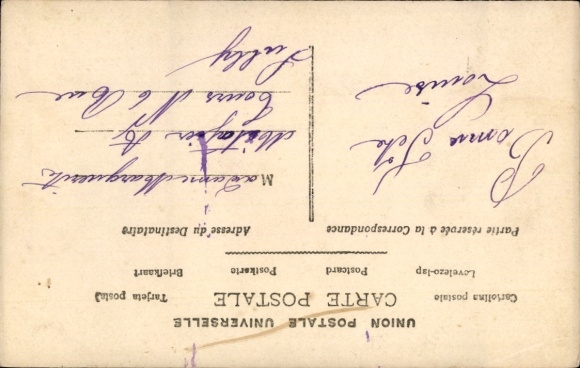 UNION POSTALE UNIVERSELLE
CARTE POSTALE
Cartolina postale
Tarjeta postal
Levelezo-lap
Postcard
Postkarte
Briefkaart
Partie réservée à la Correspondance
Adresse du Destinataire
Bonne Fête
Louise
Madame Marguerit
Tours No 6 Rue
Sully